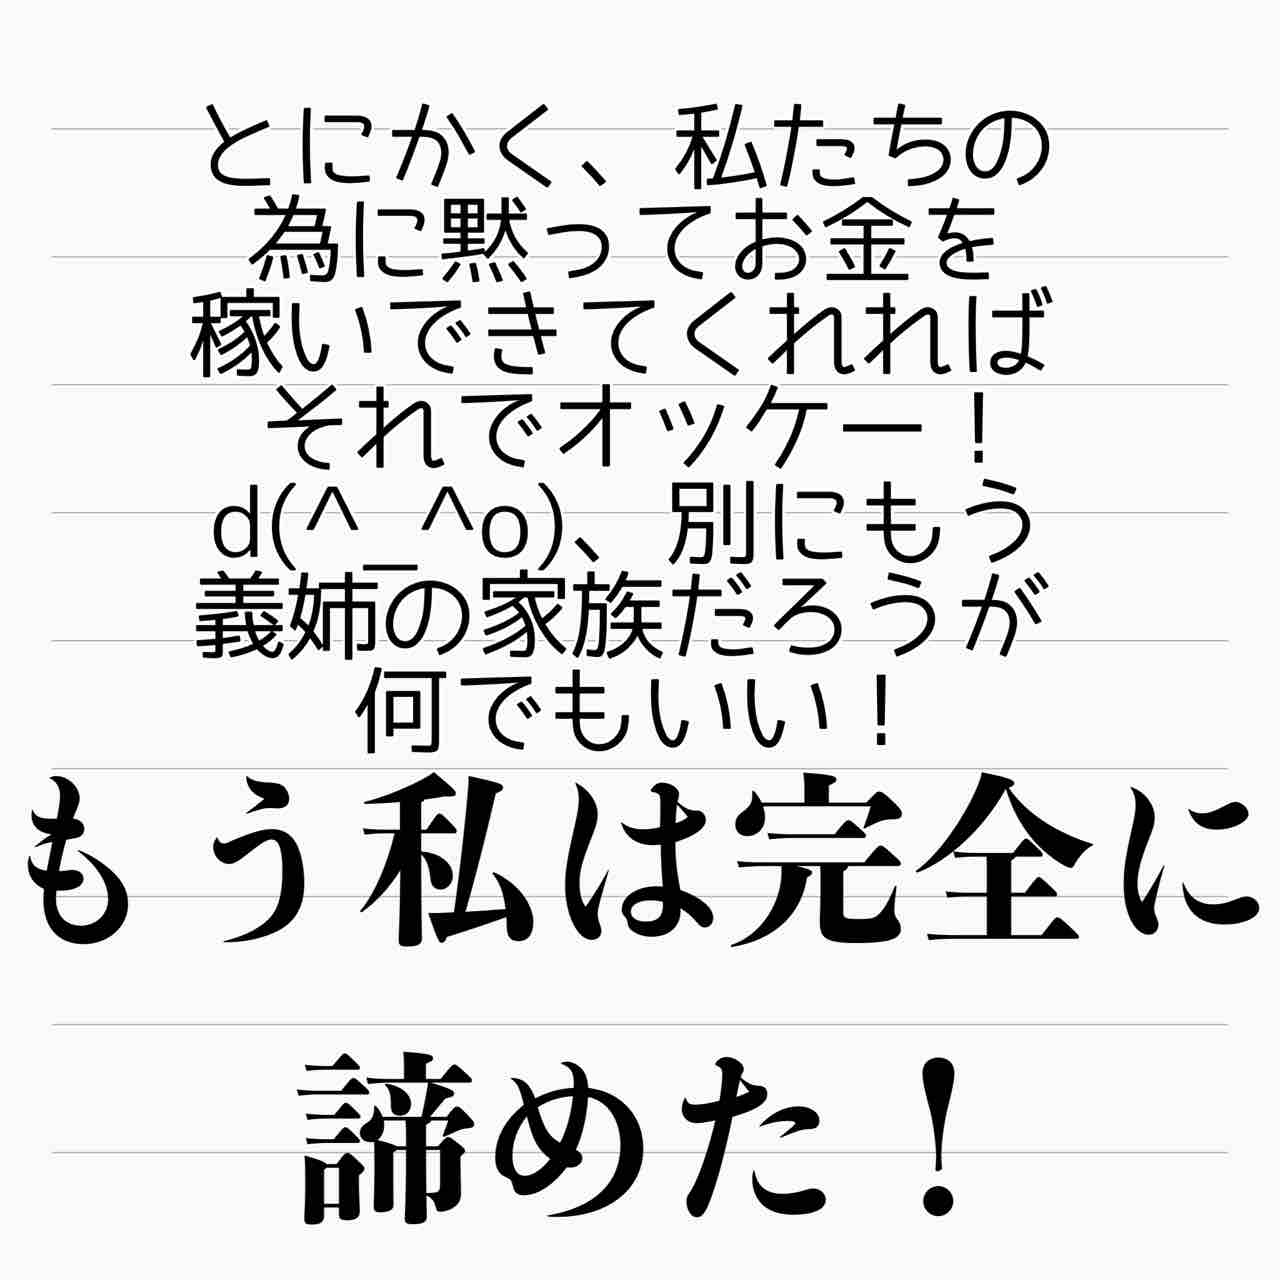 とにかく、私たちの
為に黙ってお金を
稼いできてくれれば
それでオッケー！
d(^_^o)、別にもう
義姉の家族だろうが
何でもいい！
もう私は完全に
諦めた！